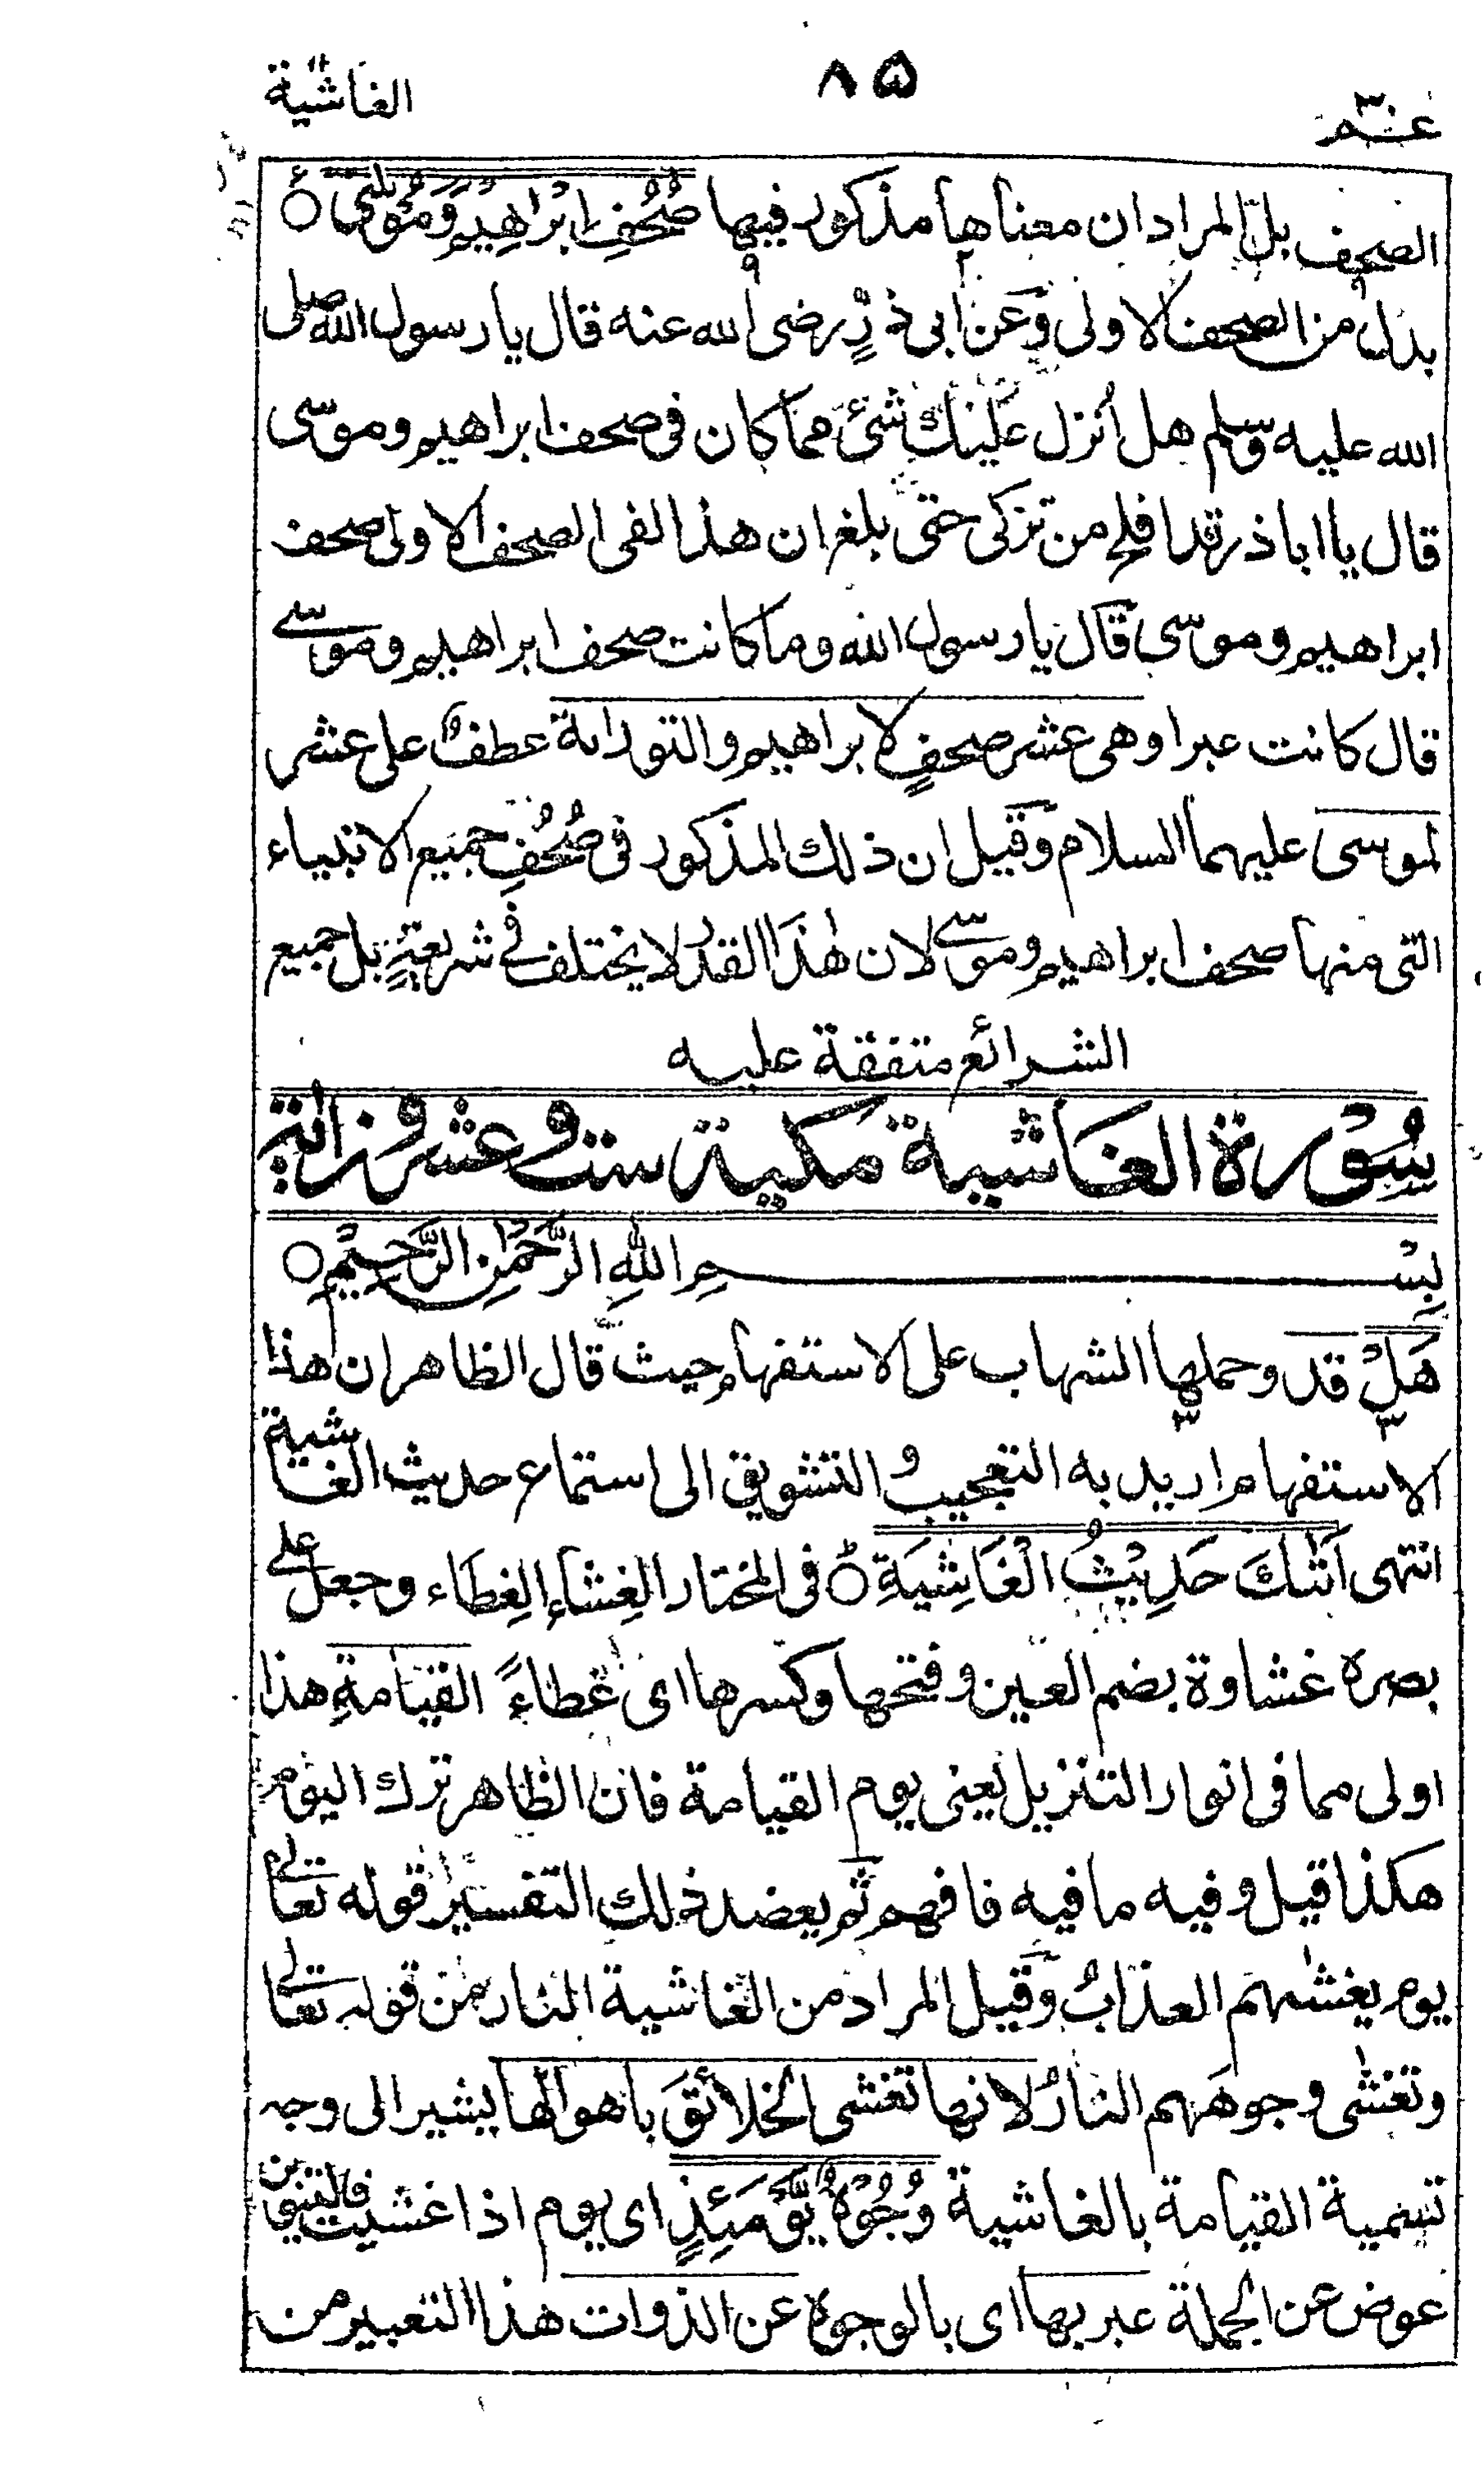 عم ٣٠
٨٥
الغاشية
الصحف بل المراد ان معناها مذكور فيها صُحُفِ اِبْرَاهِيْمَ وَمُوْسٰى ○
بدل من الصحف الاولى وعن ابى ذرٍّ رضى الله عنه قال يا رسول الله صلى
الله عليه وسلم هل اُنزل عَلَيْكَ شئ مما كان فى صحف ابراهيم وموسى
قال يا ابا ذر قد افلح من تزكى حتى بلغ ان هذا لفى الصحف الاولى صحف
ابراهيم وموسى قال يا رسول الله وما كانت صحف ابراهيم وموسى
قال كانت عبرا وهى عشر صحفٍ لابراهيم والتوراية عطف على عشر
لموسى عليهما السلام وقيل ان ذلك المذكور فى صُحُفِ جميع الانبياء
التى منها صحف ابراهيم وموسى لان هٰذا القدر لا يختلف فى شريعةٍ بل جميع
الشرائع متفقة عليه
سُوْرة الغَاشية مكية ست وعشرون اٰية
بِسْمِ اللهِ الرَّحْمٰنِ الرَّحِيْمِ ○
هَلْ قد وحملها الشهاب على الاستفهام حيث قال الظاهر ان هذا
الاستفهام اريد به التعجيب و التشويق الى استماع حديث الغاشية
انتهى اَتٰىكَ حَدِيْثُ الْغَاشِيَةِ ○ فى المختار الغِشَاء الغِطَاء وجعل على
بصره غشاوة بضم العين وفتحها وكسرها اى غطاءً القيامةِ هذا
اولى مما فى انوار التنزيل يعنى يوم القيامة فان الظاهر ترك اليوم
هكذا قيل وفيه ما فيه فافهم ثم يعضد ذلك التفسير قوله تعالى
يوم يغشٰهم العذابُ وقيل المراد من الغاشية النار من قوله تعالى
وتغشٰى وجوهَهم النارُ لانها تغشى الخلائقَ باهوالها يشير الى وجه
تسمية القيامة بالغاشية وُجُوْهٌ يَّوْمَئِذٍ اى يوم اذا غشيت فالتنوين
عوض عن الجملة عبر بها اى بالوجوه عن الذوات هذا التعبير من